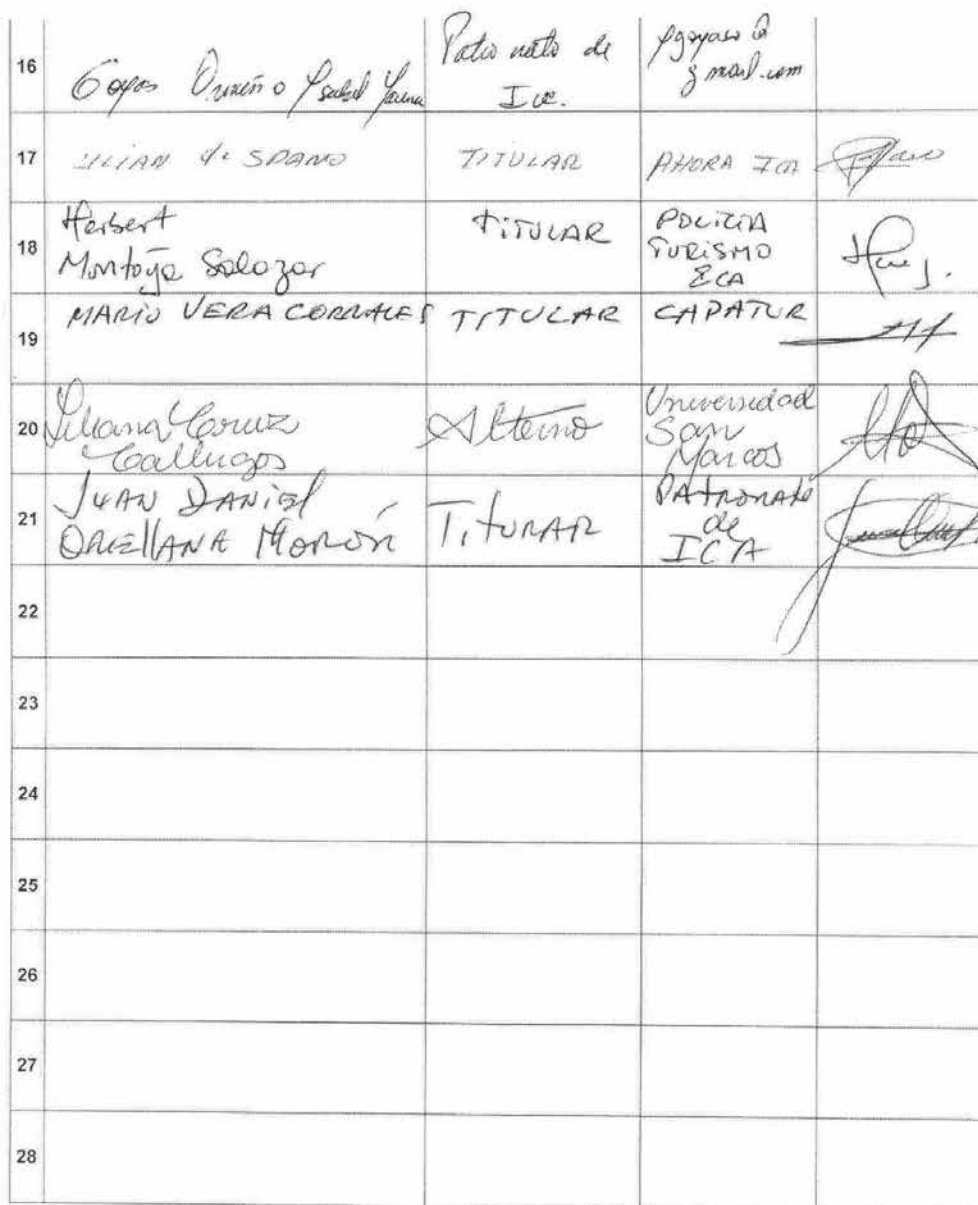 16
Goyas Ormeño Ysabel
Patronato de
Ica.
pgoyaso@
gmail.com
17
LILIAN de SPANO
TITULAR
AHORA ICA
18
Herbert
Montoya Salazar
TITULAR
POLICIA
TURISMO
ICA
19
MARIO VERA CORRALES
TITULAR
CAPATUR
20
Liliana Cruz
Gallegos
Alterno
Universidad
San
Marcos
21
JUAN DANIEL
ORELLANA MORÓN
TITURAR
PATRONATO
de
ICA
22
23
24
25
26
27
28